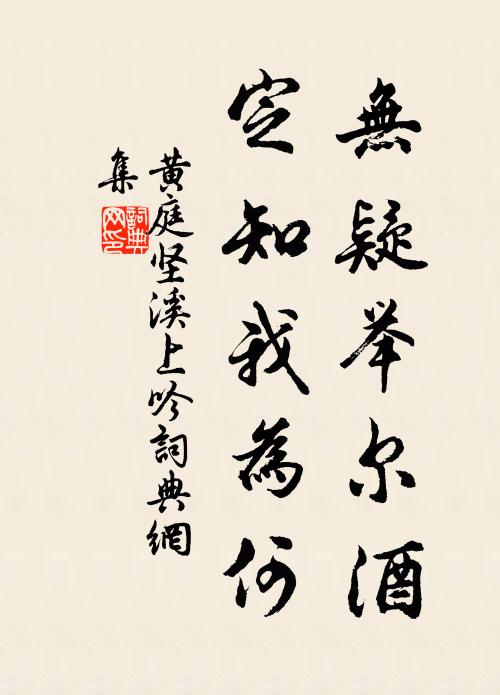 無疑举尔酒
定知我為何
黄庭坚溪上吟詞典網
集
詞典网印